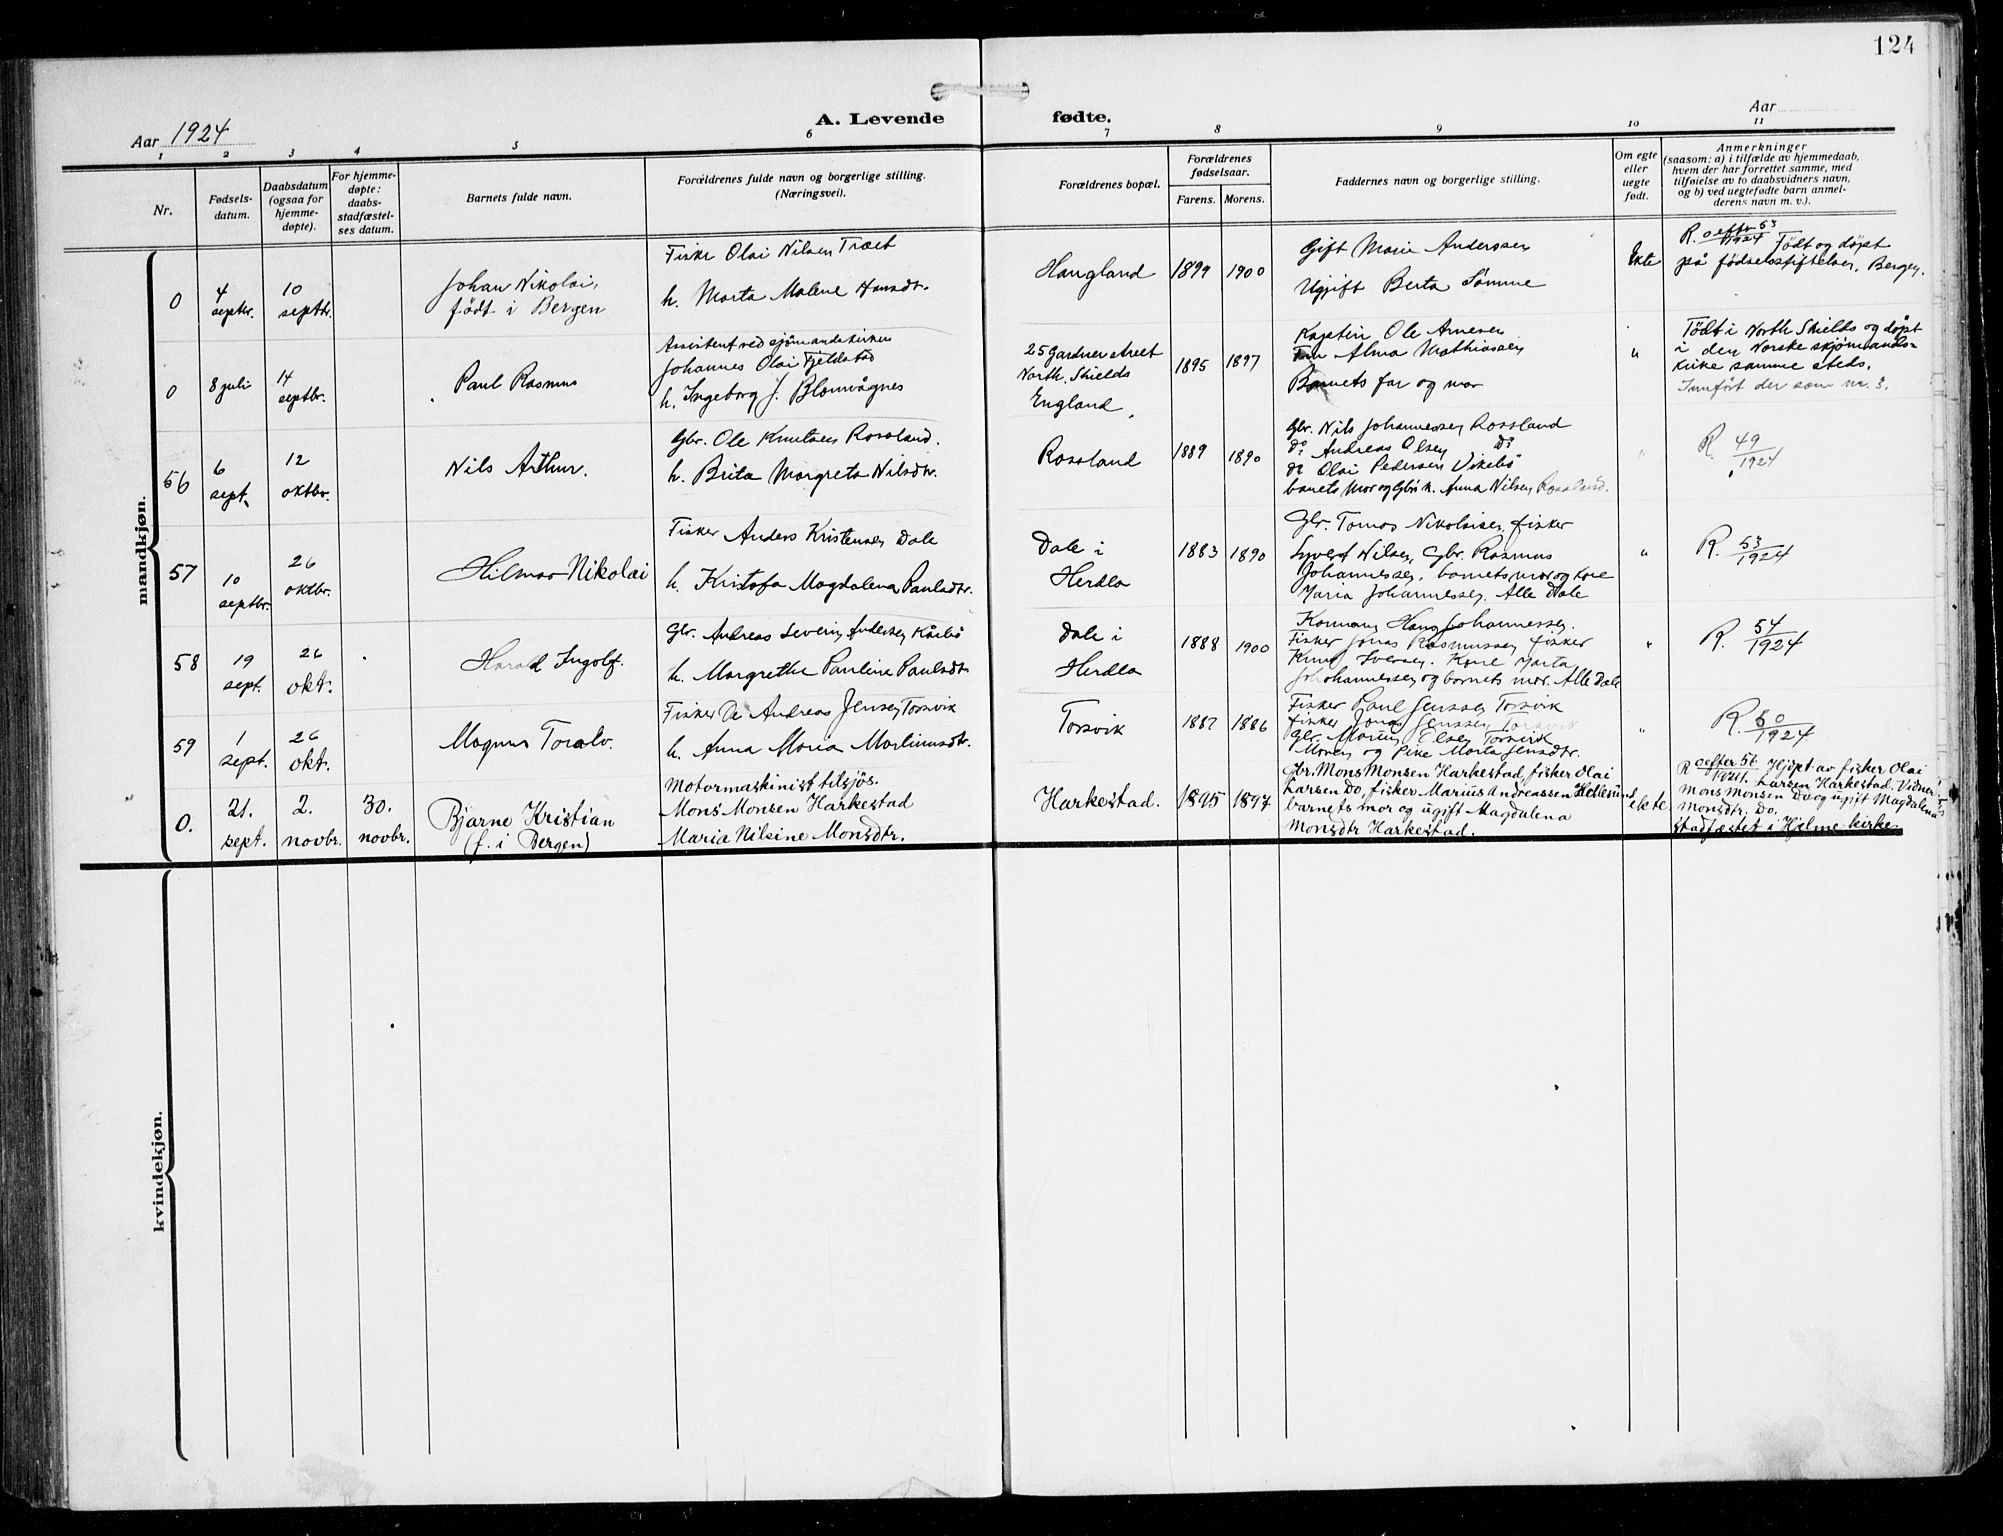 124
A. Levende fødte.
Aar 1924
Aar
1 2 3 4 5 6 7 8 9 10 11
Nr.
Fødsels-
datum.
Daabsdatum
(ogsaa for
hjemme-
døpte).
For hjemme-
døpte:
daabs-
stadfæstel-
ses datum.
Barnets fulde navn.
Forældrenes fulde navn og borgerlige stilling.
(Næringsvei).
Forældrenes bopæl.
Forældrenes
fødselsaar.
Farens. Morens.
Faddernes navn og borgerlige stilling.
Om egte
eller
uegte
født.
Anmerkninger
(saasom: a) i tilfælde av hjemmedaab,
hvem der har forrettet samme, med
tilføielse av to daabsvidners navn,
og b) ved uegtefødte barn anmel-
derens navn m. v.).
mandkjøn.
0
4
septbr.
10
septbr.
Johan Nikolai,
født i Bergen
Fisker Olai Nilsen Træet
h. Marta Malene Hansdtr.
Haugland
1899
1900
Gift Marie Anderssen
Ugift Berta Sømme
Ekte
R. oefter 53
1924 Født og døpt
på fødselsstiftelsen, Bergen.
0
8 juli
14
septbr.
Paul Rasmus
Assistent ved sjømandskirken
Johannes Olai Fjeldstad
h. Ingeborg J. Blomvågnes
25 Gardner street
North. Shields
England
1895
1897
Kaptein Ole Arnesen
Fru Alma Mathiassen
Barnets far og mor
"
Født i North Shields og døpt
i den Norske sjømands=
kirke samme steds.
Innført der som nr. 3.
56
6
sept.
12
oktbr.
Nils Arthur.
Gbr. Ole Knutsen Rossland.
h. Brita Margreta Nilsdtr.
Rossland
1889
1890
Gbr. Nils Johannessen Rossland
do Andreas Olsen do
do Olai Pedersen Vikebø
barnets mor og Gbr. k. Anna Nilsen Rossland.
"
R. 49
1924
57
10
septbr.
26
oktbr.
Hilmar Nikolai
Fisker Anders Kristensen Dale
h. Kristofa Magdalena Paulsdtr.
Dale i
Herdla
1883
1890
Gbr. Tomas Nikolaisen, fisker
Syvert Nilsen, Gbr. Rasmus
Johannessen, barnets mor og kone
Maria Johannessen. Alle Dale
"
R. 53
1924
58
19
sept.
26
okt.
Harald Ingolf.
Gbr. Andreas Severin Andersen Kårbø
h. Margrethe Pauline Paulsdtr
Dale i
Herdla
1888
1900
Hans Johannessen.
Fisker Jonas Rasmussen, fisker
Knut Iversen. Kone Marta
Johannessen og barnets mor. Alle Dale
"
R. 54
1924
59
1
sept.
26
okt.
Magnus Toralv.
Fisker Andreas Jensen Torsvik
h. Anna Maria Martinusdtr.
Torsvik
1887
1886
Fisker Paul Jenssen Torsvik
fisker Jonas Jenssen Torsvik
Gbr. Marius Elsen Torsvik
Moren og Pike Marta Jensdtr.
"
R. 50
1924
0.
21.
sept.
2.
novbr.
30.
novbr.
Bjarne Kristian
(f. i Bergen)
Motormaskinist tilsjøs.
Mons Monsen Harkestad
Maria Nilsine Monsdtr.
Harkestad.
1895
1897
Gbr. Mons Monsen Harkestad, fisker Olai
Larsen Do, fisker Marius Andreassen Hellesund
barnets mor og ugift Magdalena
Monsdtr Harkestad.
ekte
R oefter 56
1924. Hjdpt av fisker Olai
Larsen Harkestad. Vidner:
Mons Monsen Do og ugift Magdalena
Monsdtr. Do.
Stadfæstet i Hjelme kirke.
kvindekjøn.